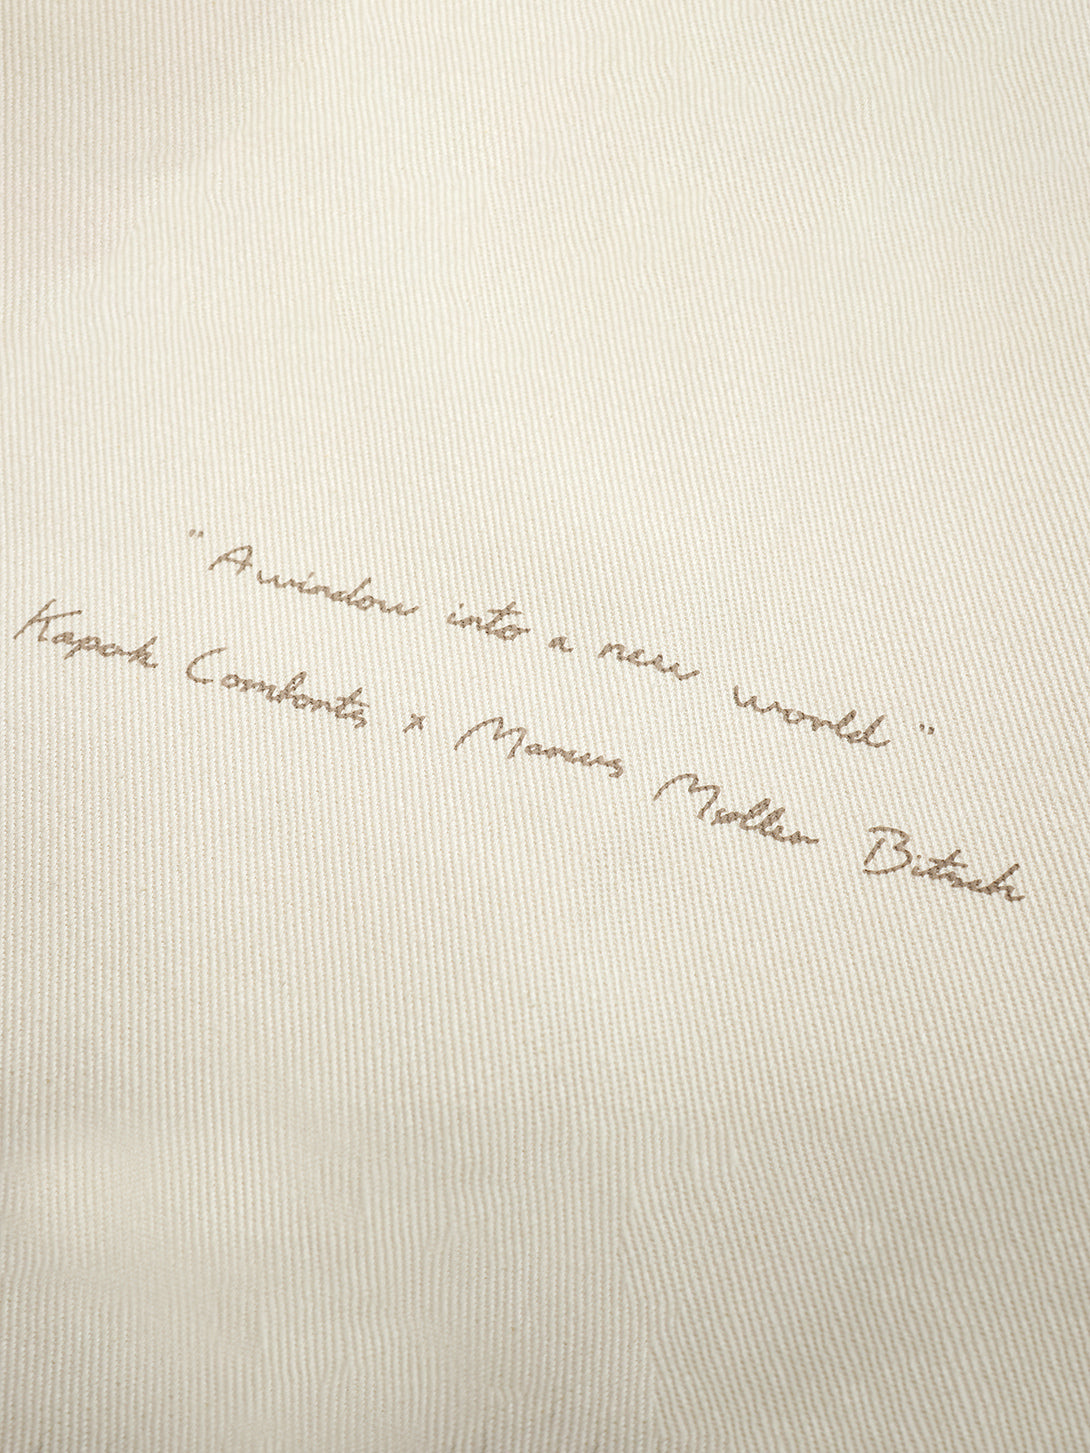 "A window into a new world"
Kapok Comforts x Marcus Møller Bitsch